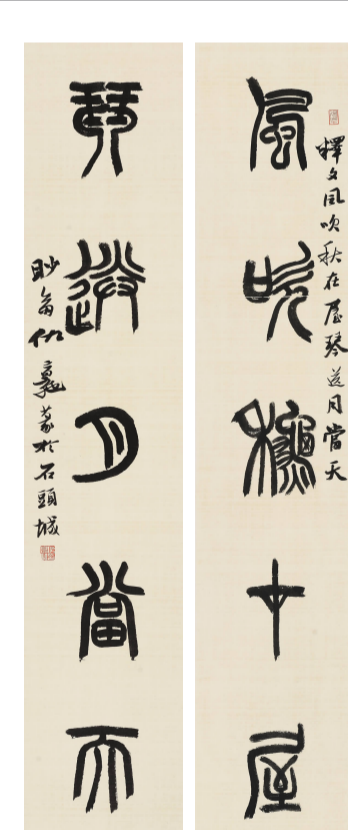 釋文風吹秋在屋琴送月當天
風吹龝在屋
琴送月當天
眇翁於石頭城